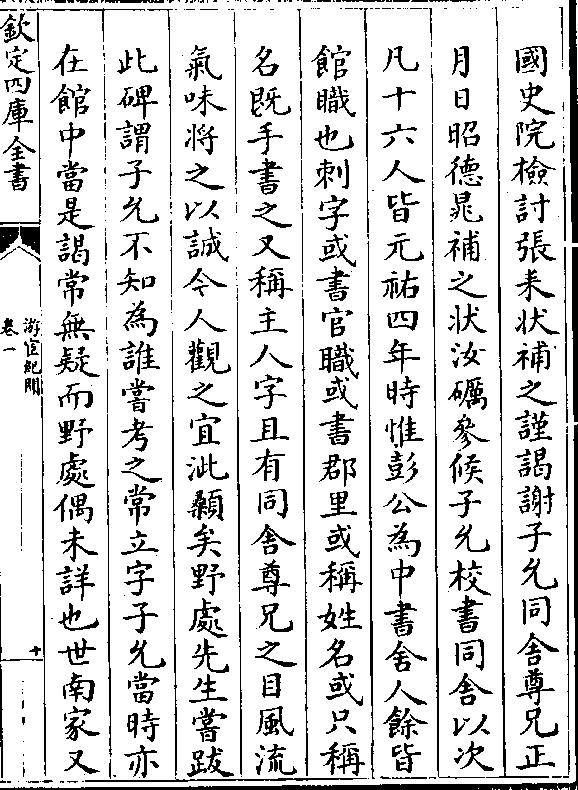 國史院檢討張耒狀補之謹謁謝子允同舎尊兄正
月日昭德晁補之狀汝礪參候子允校書同舎以次
凡十六人皆元祐四年時惟彭公為中書舎人餘皆
館職也刺字或書官職或書郡里或稱姓名或只稱
名既手書之又稱主人字且有同舎尊兄之目風流
氣味將之以誠令人觀之宜泚顙矣野處先生嘗跋
此碑謂子允不知為誰嘗考之常立字子允當時亦
在館中當是謁常無疑而野處偶未詳也世南家又
欽定四庫全書
游宦紀聞
卷一
十